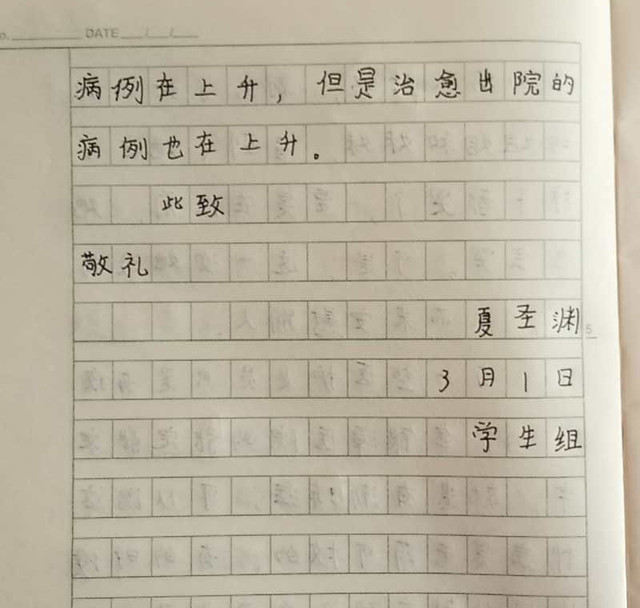 DATE
病例在上升，但是治愈出院的
病例也在上升。
此致
敬礼
夏圣渊
3月1日
学生组